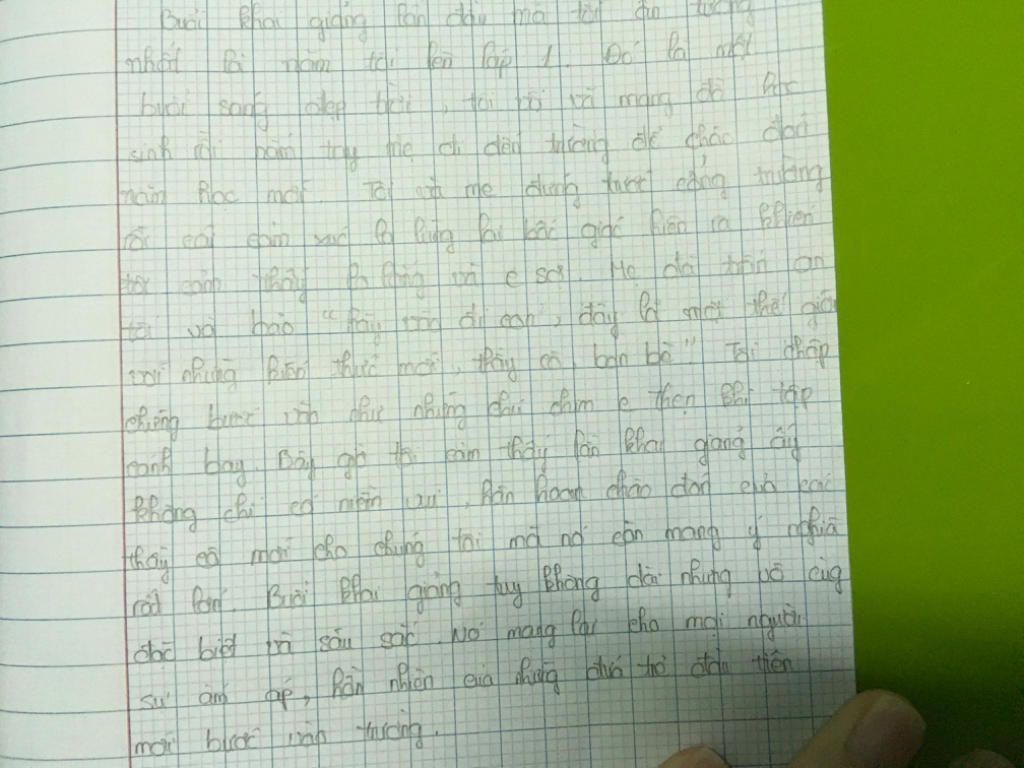 Buổi khai giảng lần đầu mà tôi ấn tượng
nhất là năm tôi lên lớp 1. Đó là một
buổi sáng đẹp trời, tôi vã mang đồ học
sinh rồi nắm tay mẹ đi đến trường để chào đón
năm học mới. Tôi và mẹ đứng trước cổng trường
rồi cái cảm xúc lạ lùng lại bất giác hiện ra khiến
tôi cảm thấy lo lắng và e sợ. Mẹ đã trấn an
tôi và bảo "hãy vào đi con, đây là một thế giới
với những kiến thức mới, thầy cô, bạn bè" Tôi chập
chững bước vào như những chú chim e thẹn khi tập
cánh bay. Bây giờ tôi cảm thấy lần khai giảng ấy
không chỉ có niềm vui, hân hoan chào đón của các
thầy cô mới cho chúng tôi mà nó còn mang ý nghĩa
rất lớn. Buổi khai giảng tuy không dài nhưng vô cùg
đặc biệt và sâu sắc. Nó mang lại cho mọi người
sự ấm áp, hồn nhiên của những đứa trẻ đầu tiên
mới bước vào trường.